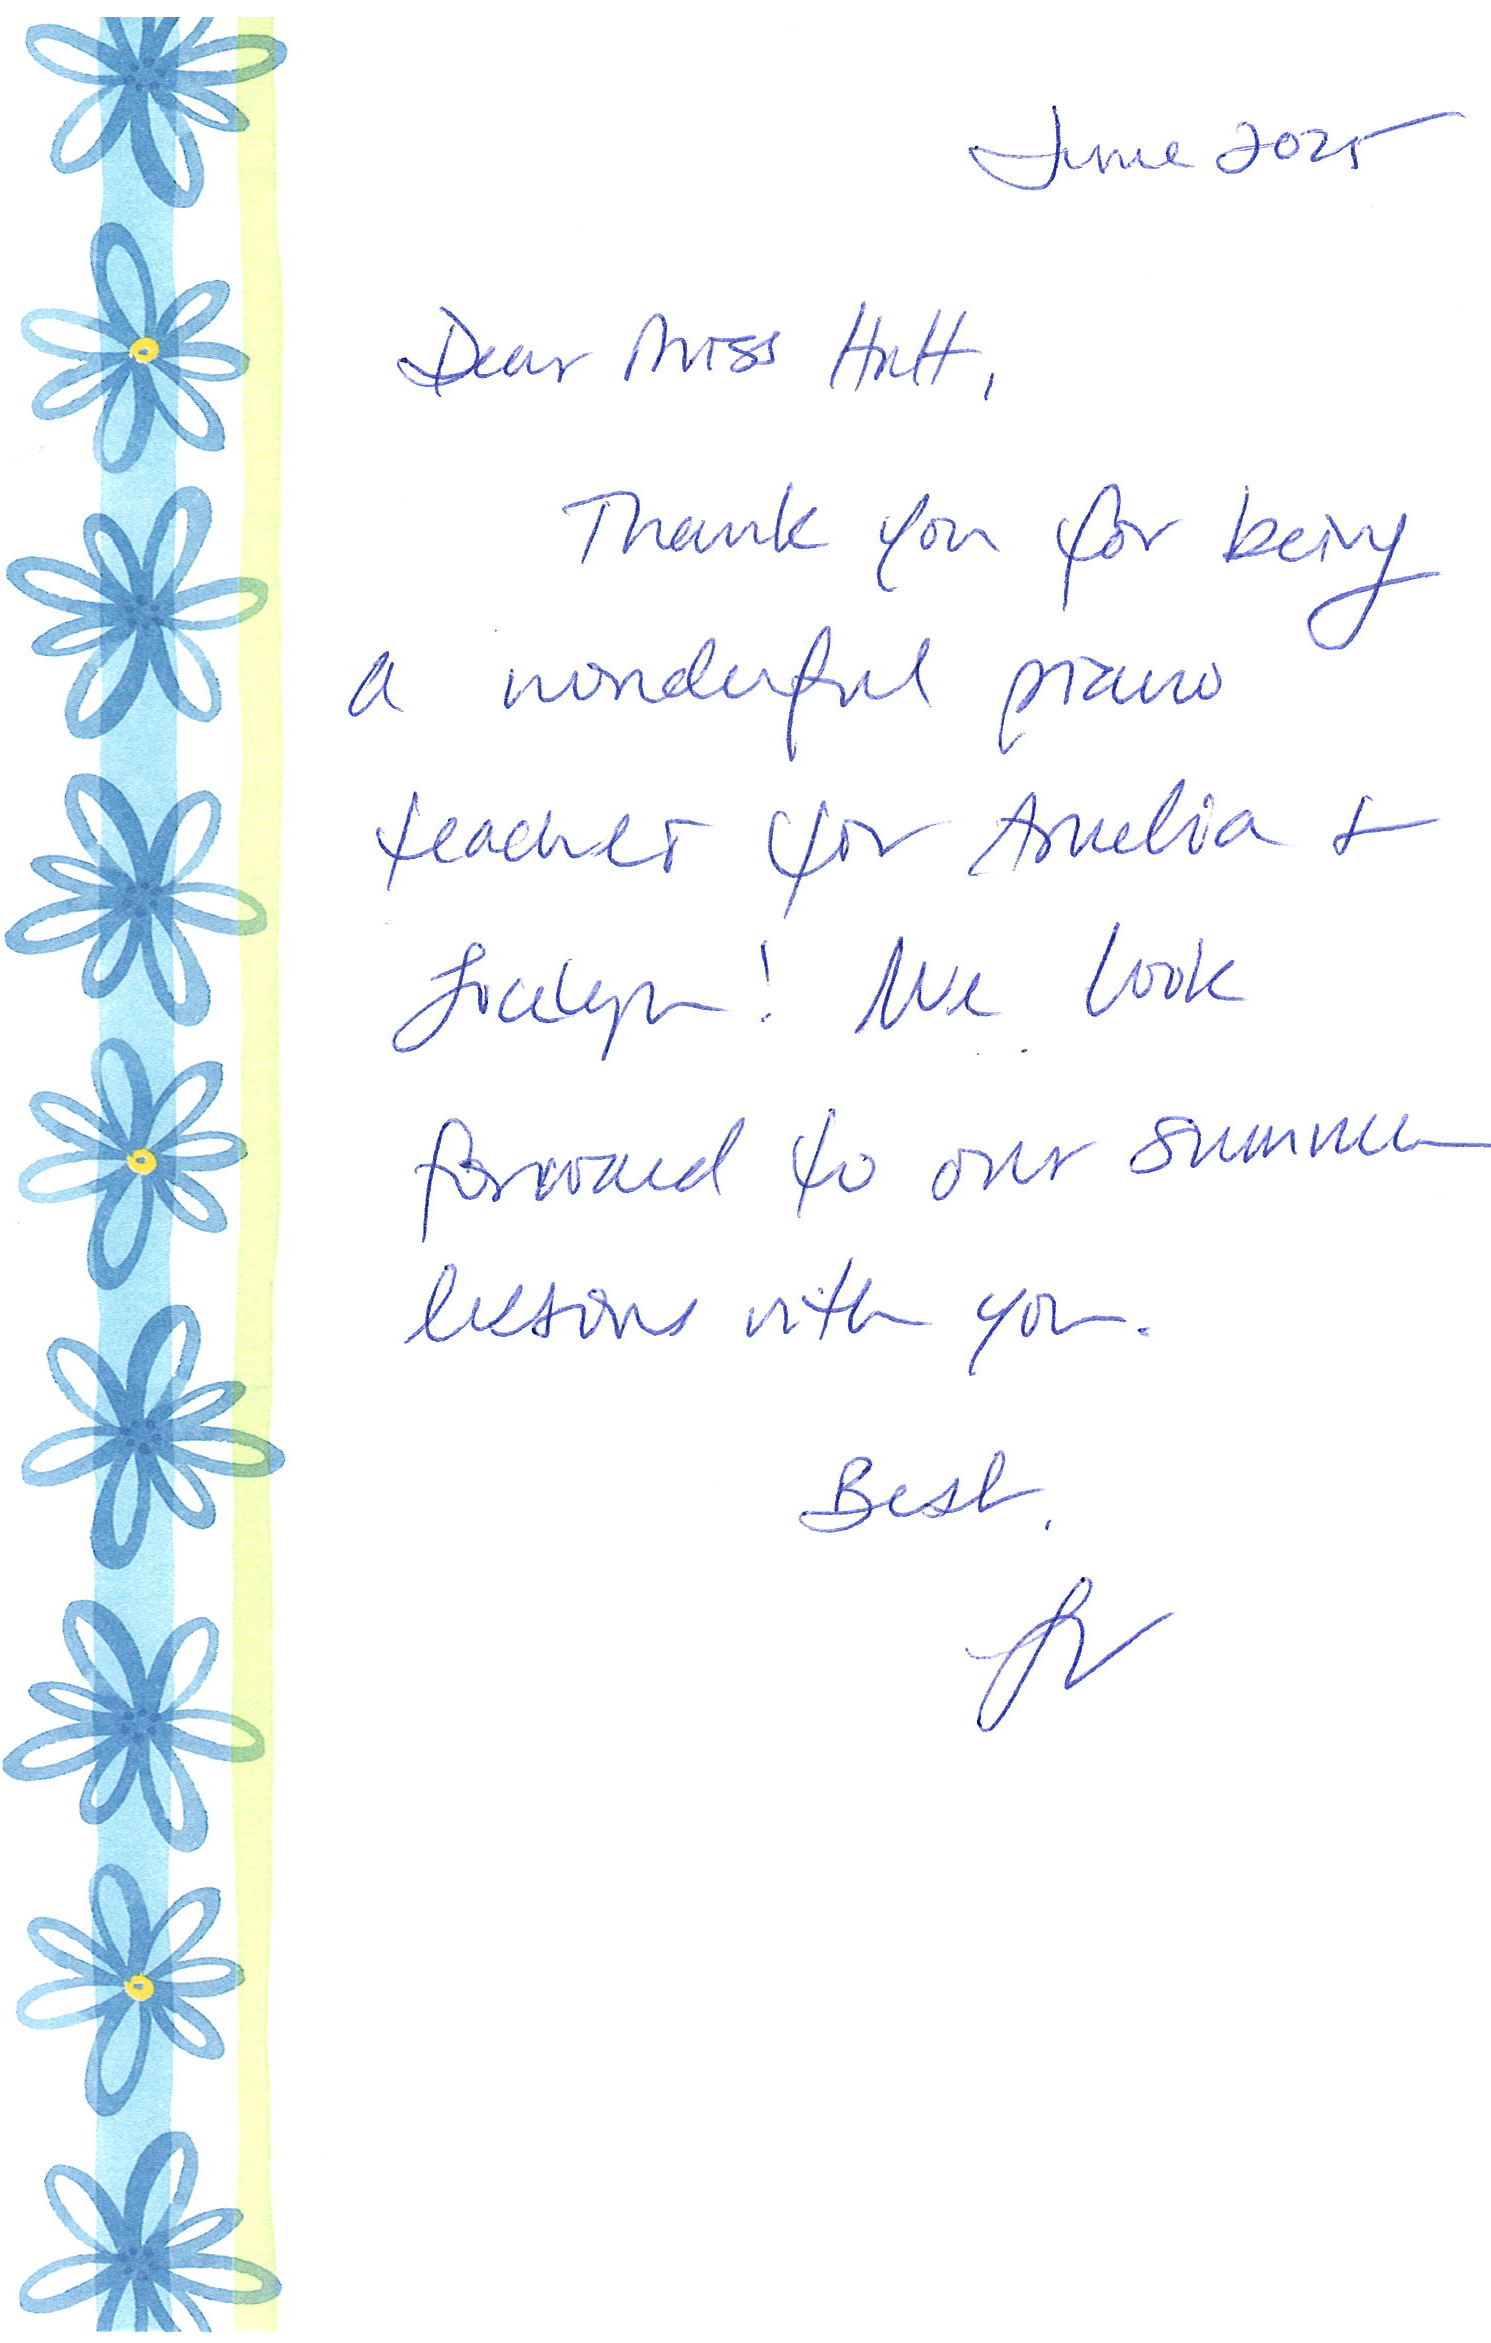 June 2025
Dear Miss
Thank you for being
a wonderful piano
teacher for Amelia &
Jocelyn! We look
forward to our summer
lessons with you.
Best,